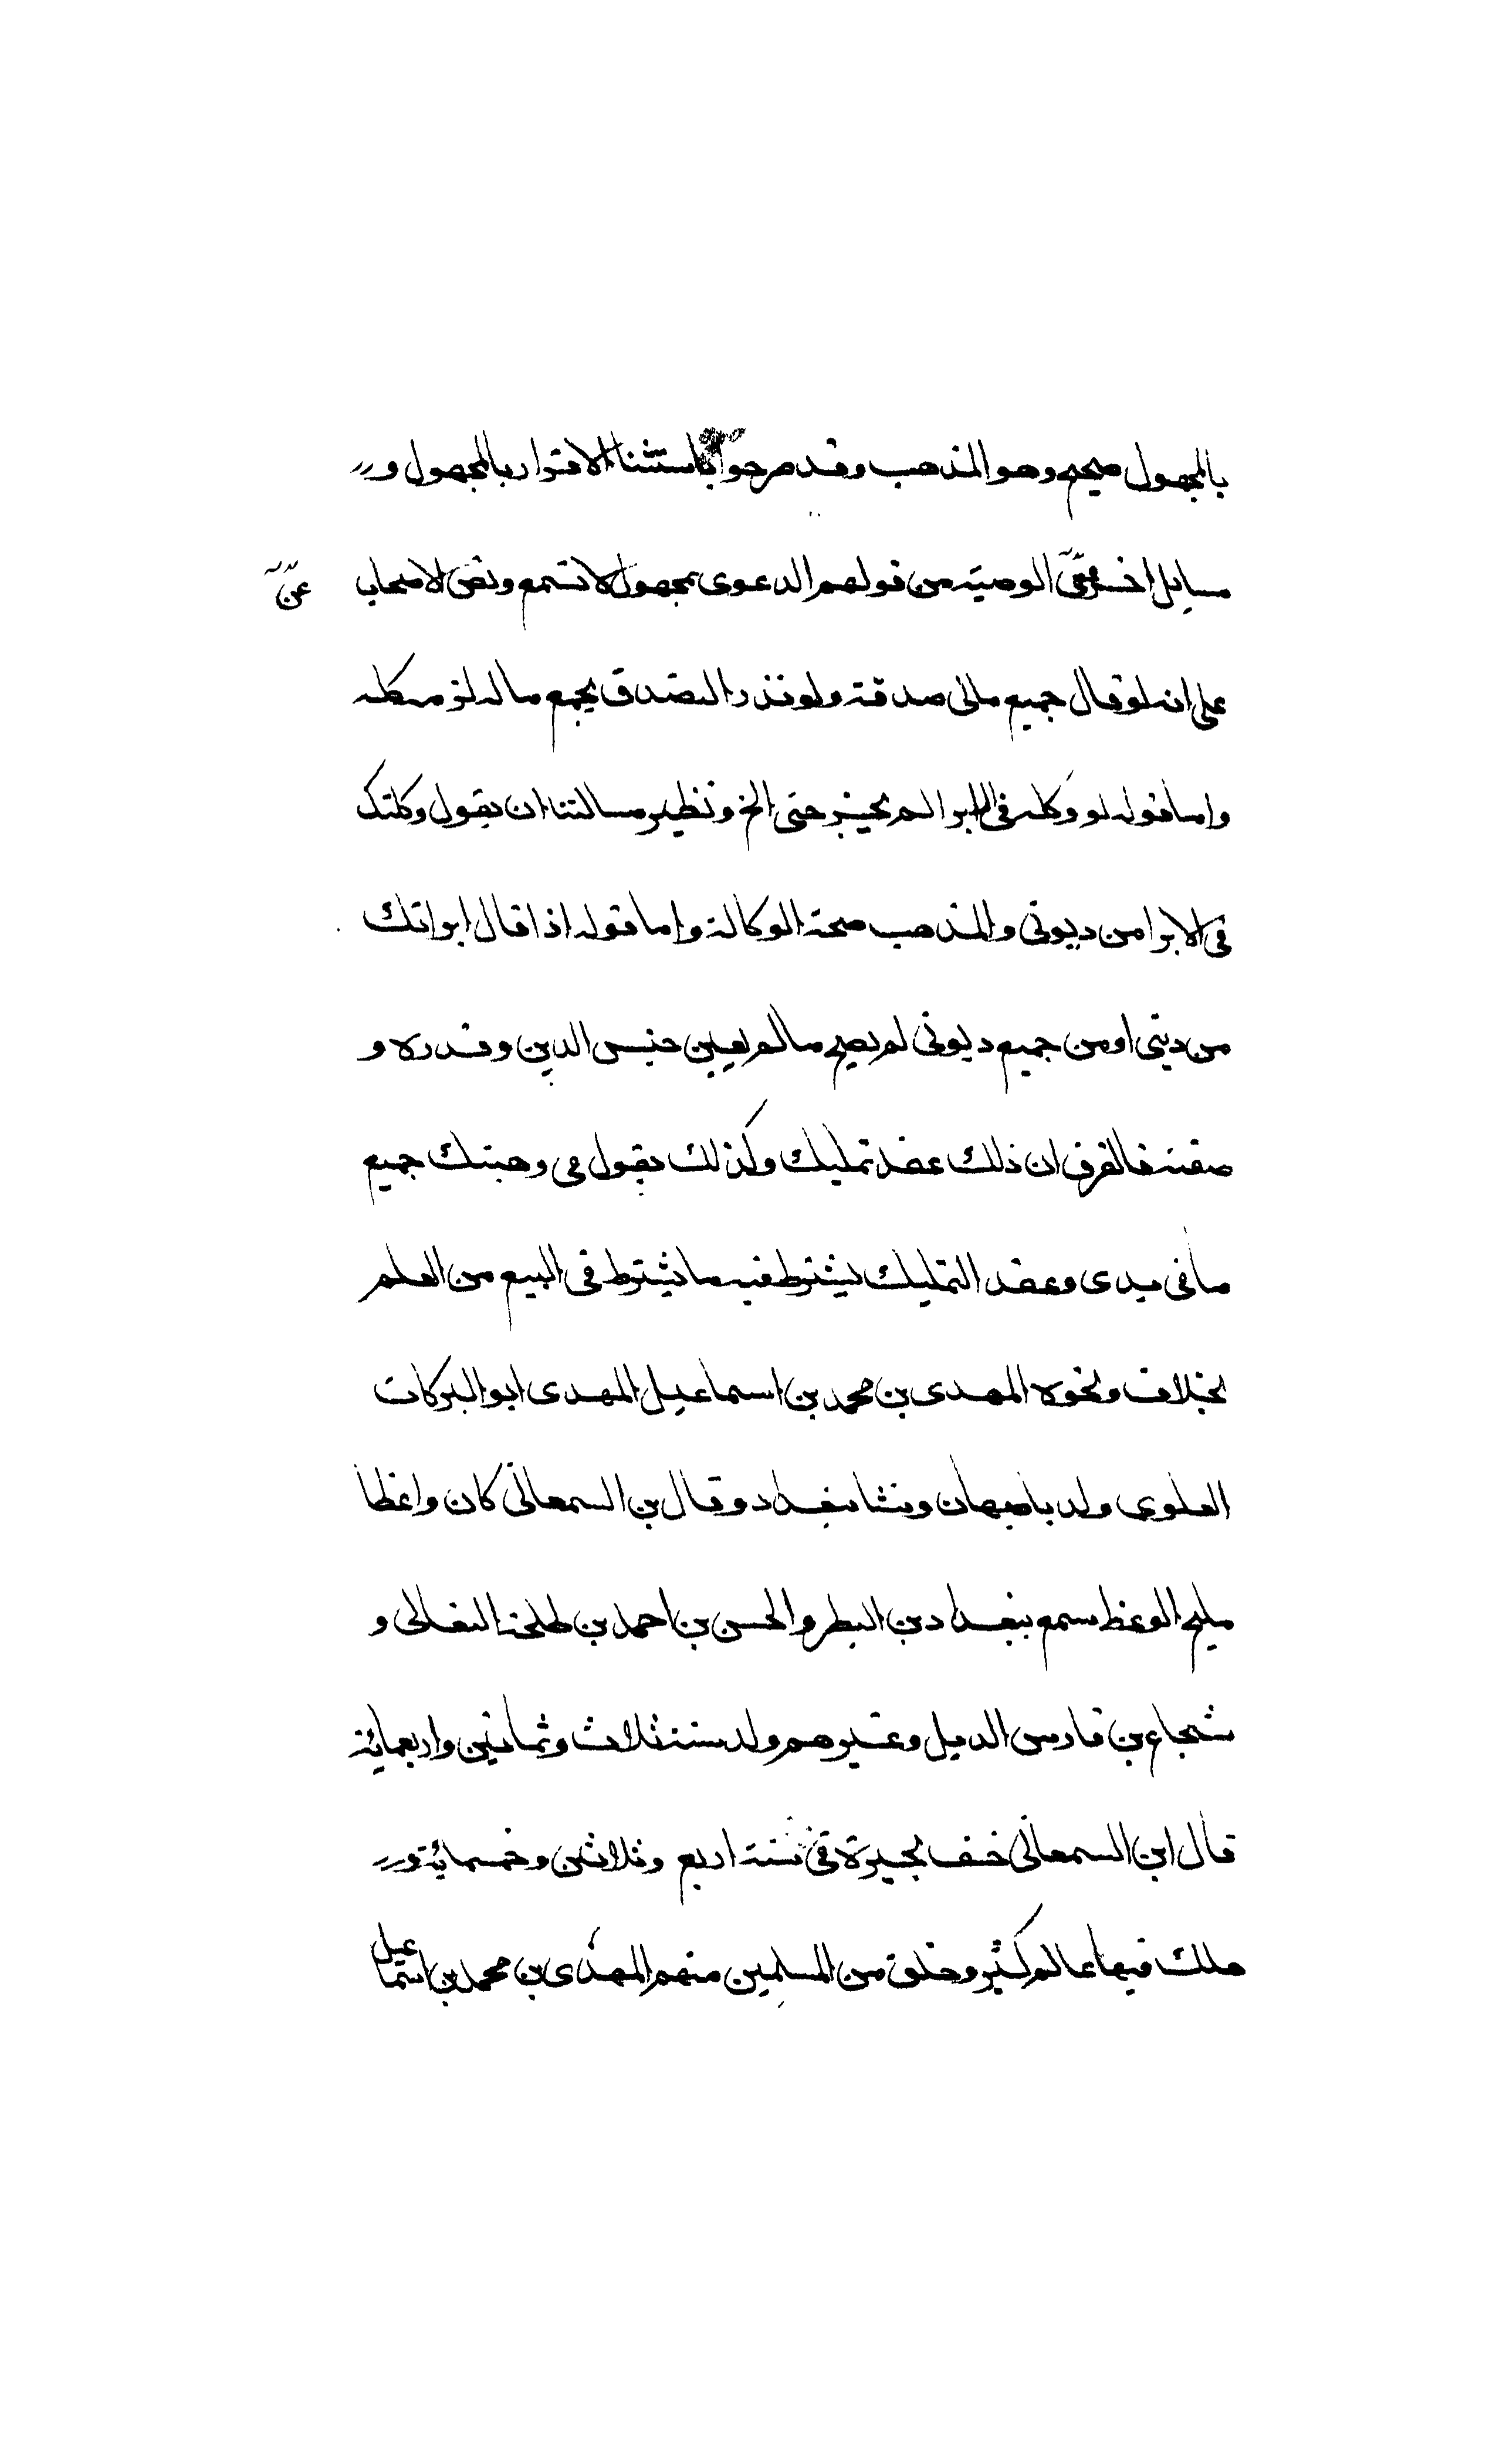 بالمجهول صحيح وهو المذهب وقد صرحوا باستثنا الاقرار بالمجهول و
مسايل اخر في الوصية من قولهم الدعوى بمجهول لا تسمع ونص الاصحاب
على انه لو قال جميع مالى صدقة ولو نذر التصدق بجميع ماله لزمه كله
واما قوله لو وكله فى الابرا لم يجز حتى الخ ونظير مسالتنا ان يقول وكلتك
فى الابرا من ديونى والمذهب صحة الوكالة واما قوله اذا قال ابراتك
من دينى او من جميع ديونى لم يصح مالم يعين جنس الدين وقدره و
صفته فالفرق ان ذلك عقد تمليك وكذلك يقول فى وهبتك جميع
مافى يدى وعقد التمليك يشترط فيه ما يشترط فى البيع من العلم
بخلاف ونحوه المهدى بن محمد بن اسماعيل المهدى ابو البركات
العلوى ولد باصبهان ونشا ببغداد وقال بن السمعانى كان واعظا
مليح الوعظ سمع ببغداد بن البطر والحسن بن احمد بن طلحة النعالى و
شجاع بن فارس الدبيل وغيرهم ولد سنة ثلاث وثمانين واربعمائة
قال ابن السمعانى خسف بجيرة فى سنة اربع وثلاثين وخمسمائة و
هلك فيها عالم كثير وخلق من المسلمين منهم المهدى بن محمد بن اسماعيل